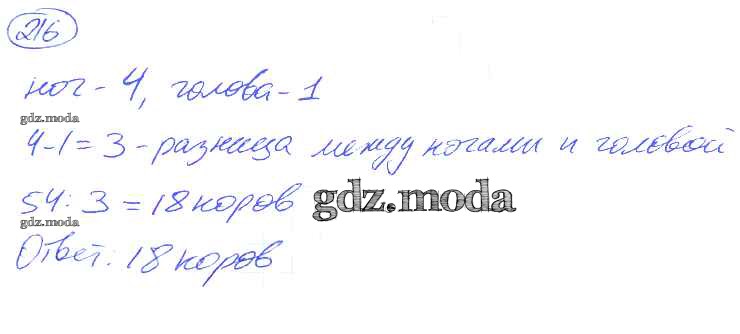 216
ног - 4, голова - 1
gdz.moda
4-1=3 - разница между ногами и головой
54:3=18 коров gdz.moda
gdz.moda
Ответ: 18 коров